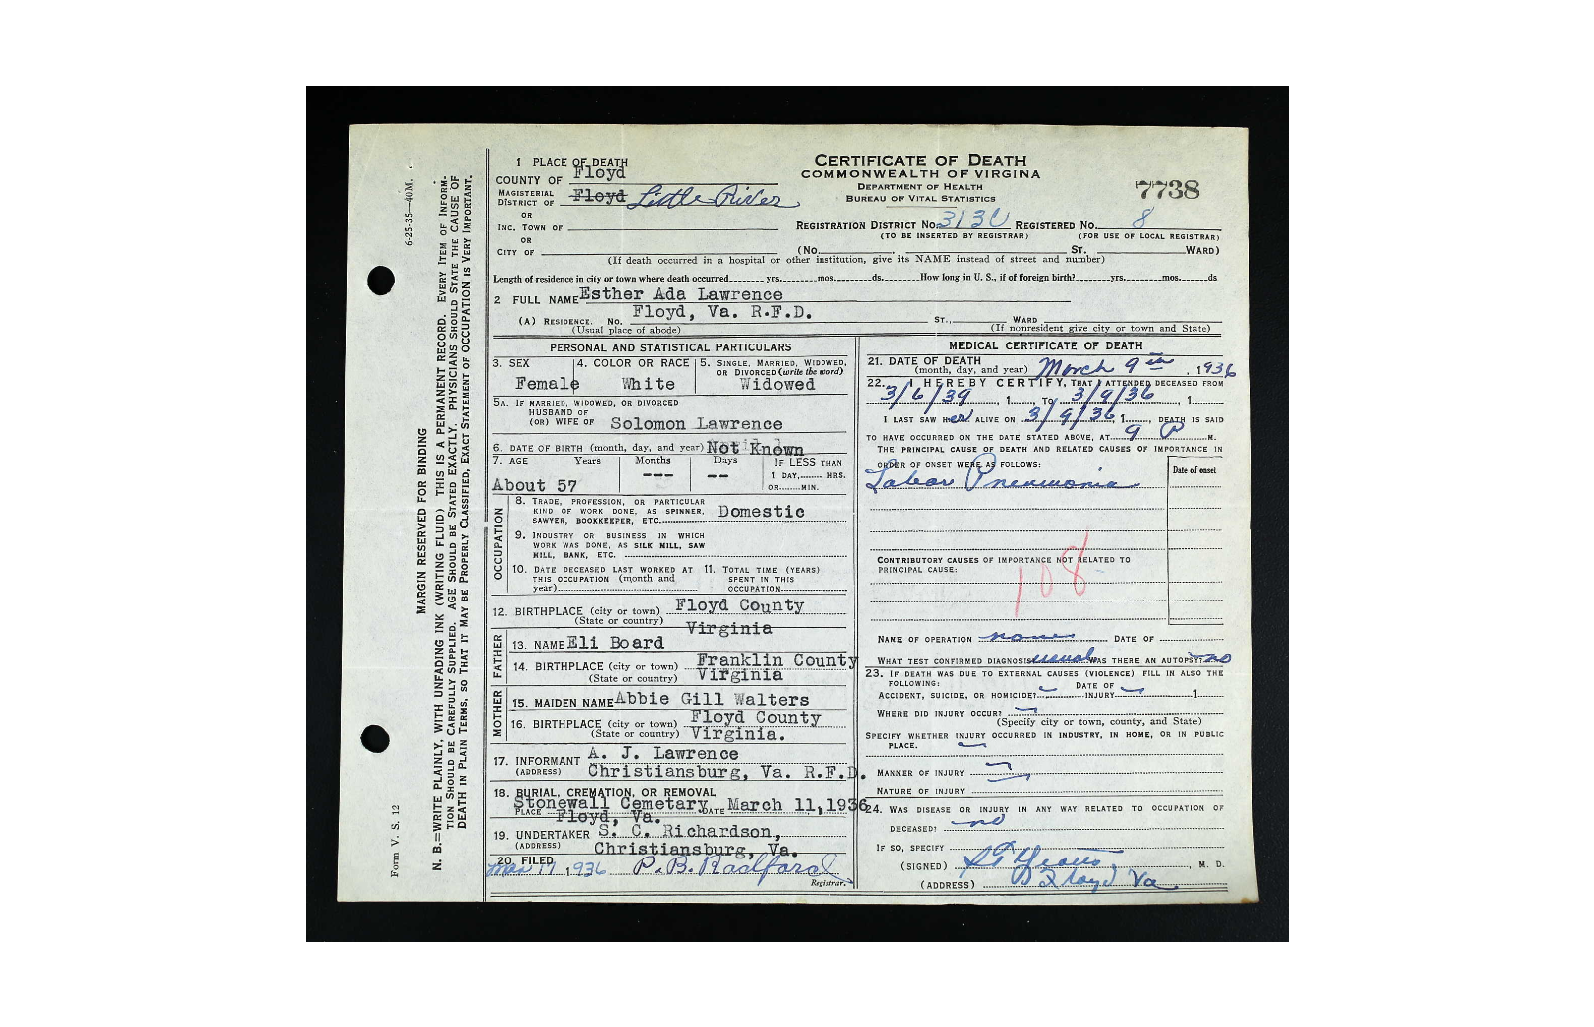 6-25-35—40M.
MARGIN RESERVED FOR BINDING
N. B.—WRITE PLAINLY, WITH UNFADING INK (WRITING FLUID) THIS IS A PERMANENT RECORD. EVERY ITEM OF INFORM-
TION SHOULD BE CAREFULLY SUPPLIED. AGE SHOULD BE STATED EXACTLY. PHYSICIANS SHOULD STATE THE CAUSE OF
DEATH IN PLAIN TERMS, SO THAT IT MAY BE PROPERLY CLASSIFIED, EXACT STATEMENT OF OCCUPATION IS VERY IMPORTANT.
Form V. S. 12
1 PLACE OF DEATH
COUNTY OF Floyd
MAGISTERIAL DISTRICT OF Floyd Little River
OR
INC. TOWN OF
OR
CITY OF
CERTIFICATE OF DEATH
COMMONWEALTH OF VIRGINA
DEPARTMENT OF HEALTH
BUREAU OF VITAL STATISTICS
7738
REGISTRATION DISTRICT No. 313C REGISTERED No. 8
(TO BE INSERTED BY REGISTRAR) (FOR USE OF LOCAL REGISTRAR)
(No. , ST. WARD)
(If death occurred in a hospital or other institution, give its NAME instead of street and number)
Length of residence in city or town where death occurred yrs. mos. ds. How long in U. S., if of foreign birth? yrs. mos. ds
2 FULL NAME Esther Ada Lawrence
(A) RESIDENCE. No. Floyd, Va. R.F.D. ST., WARD
(Usual place of abode) (If nonresident give city or town and State)
PERSONAL AND STATISTICAL PARTICULARS
3. SEX 4. COLOR OR RACE 5. SINGLE, MARRIED, WIDOWED, OR DIVORCED (write the word)
Female White Widowed
5A. IF MARRIED, WIDOWED, OR DIVORCED
HUSBAND OF
(OR) WIFE OF Solomon Lawrence
6. DATE OF BIRTH (month, day, and year) Not Known
7. AGE Years Months Days IF LESS THAN
1 DAY, HRS.
OR MIN.
About 57 --- --
OCCUPATION
8. TRADE, PROFESSION, OR PARTICULAR
KIND OF WORK DONE, AS SPINNER, Domestic
SAWYER, BOOKKEEPER, ETC.
9. INDUSTRY OR BUSINESS IN WHICH
WORK WAS DONE, AS SILK MILL, SAW
MILL, BANK, ETC.
10. DATE DECEASED LAST WORKED AT THIS OCCUPATION (month and year)
11. TOTAL TIME (YEARS) SPENT IN THIS OCCUPATION
12. BIRTHPLACE (city or town) Floyd County
(State or country) Virginia
FATHER
13. NAME Eli Board
14. BIRTHPLACE (city or town) Franklin County
(State or country) Virginia
MOTHER
15. MAIDEN NAME Abbie Gill Walters
16. BIRTHPLACE (city or town) Floyd County
(State or country) Virginia.
17. INFORMANT A. J. Lawrence
(ADDRESS) Christiansburg, Va. R.F.D.
18. BURIAL, CREMATION, OR REMOVAL
PLACE Stonewall Cemetary DATE March 11, 1936
Floyd, Va.
19. UNDERTAKER S. C. Richardson,
(ADDRESS) Christiansburg, Va.
20. FILED Mar 17 1936 P. B. Radford
Registrar.
MEDICAL CERTIFICATE OF DEATH
21. DATE OF DEATH
(month, day, and year) March 9th, 1936
22. I HEREBY CERTIFY, THAT I ATTENDED DECEASED FROM
3/6/39, 1 , TO 3/9/36, 1
I LAST SAW Her ALIVE ON 3/9/36, 1 , DEATH IS SAID
TO HAVE OCCURRED ON THE DATE STATED ABOVE, AT 9 P M.
THE PRINCIPAL CAUSE OF DEATH AND RELATED CAUSES OF IMPORTANCE IN
ORDER OF ONSET WERE AS FOLLOWS:
Date of onset
Labar Pneumonia
CONTRIBUTORY CAUSES OF IMPORTANCE NOT RELATED TO
PRINCIPAL CAUSE:
108
NAME OF OPERATION none DATE OF
WHAT TEST CONFIRMED DIAGNOSIS usual WAS THERE AN AUTOPSY? no
23. IF DEATH WAS DUE TO EXTERNAL CAUSES (VIOLENCE) FILL IN ALSO THE
FOLLOWING:
ACCIDENT, SUICIDE, OR HOMICIDE? DATE OF INJURY 1
WHERE DID INJURY OCCUR?
(Specify city or town, county, and State)
SPECIFY WHETHER INJURY OCCURRED IN INDUSTRY, IN HOME, OR IN PUBLIC
PLACE.
MANNER OF INJURY
NATURE OF INJURY
24. WAS DISEASE OR INJURY IN ANY WAY RELATED TO OCCUPATION OF
DECEASED? no
IF SO, SPECIFY
(SIGNED) , M. D.
(ADDRESS) Floyd Va